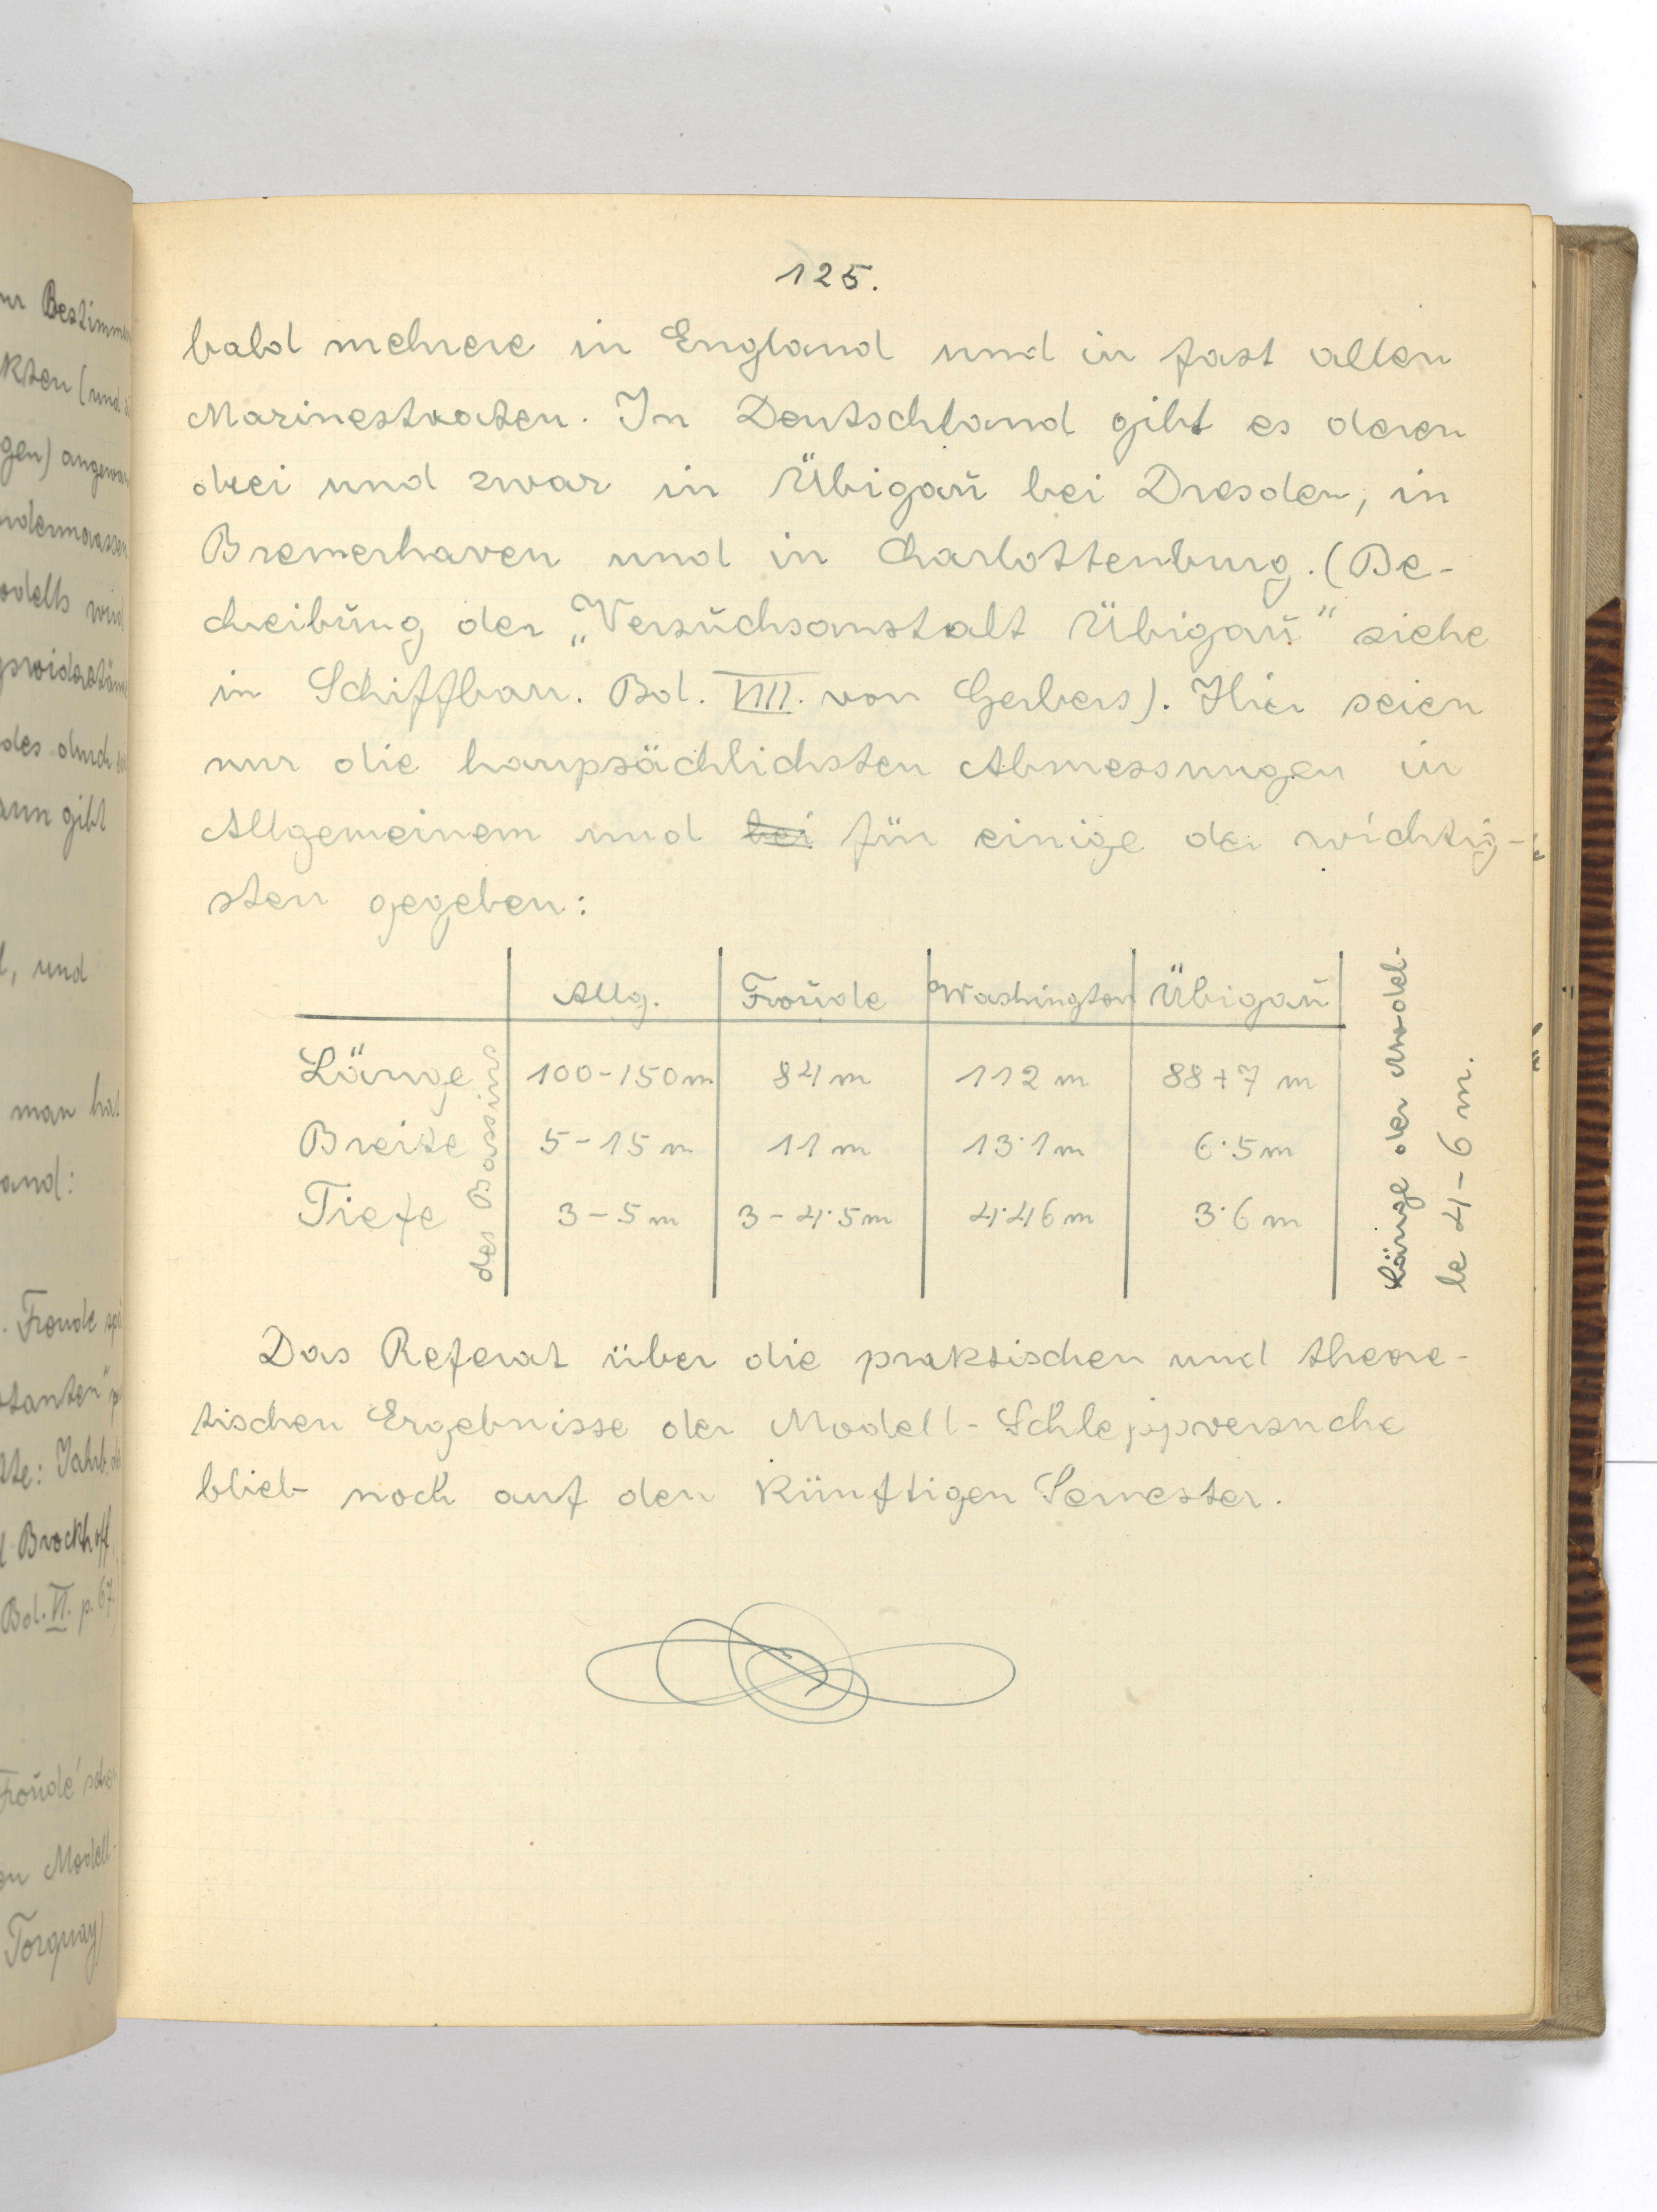 125.
bald mehrere in England und in fast allen
Marinestaaten. In Deutschland gibt es deren
drei und zwar in Übigau bei Dresden, in
Bremerhaven und in Charlottenburg. (Be-
chreibung der „Versuchsanstalt Übigau" siehe
in Schiffbau. Bd. VIII. von Gerbers). Hier seien
nur die haupsächlichsten Abmessungen in
Allgemeinem und bei für einige der wichtig-
sten gegeben:
Allg. Froude Washington Übigau
Länge 100-150m 84 m 112 m 88+7 m
Breite 5-15 m 11 m 13·1m 6·5m
Tiefe 3-5 m 3-4·5m 4·46 m 3·6 m
des Bassins
Länge der Model-
le 4-6 m.
Das Referat über die praktischen und theore-
tischen Ergebnisse der Modell-Schleppversuche
blieb noch auf den künftigen Semester.
kten (und
gen) angewan
odells wird
des durch
ann gibt
, und
man hat
and:
. Froude
stanten"
Jahrb. de
Brockhoff
Bd. VI. p. 67.
Froude'schen
en Modell-
Torquay)